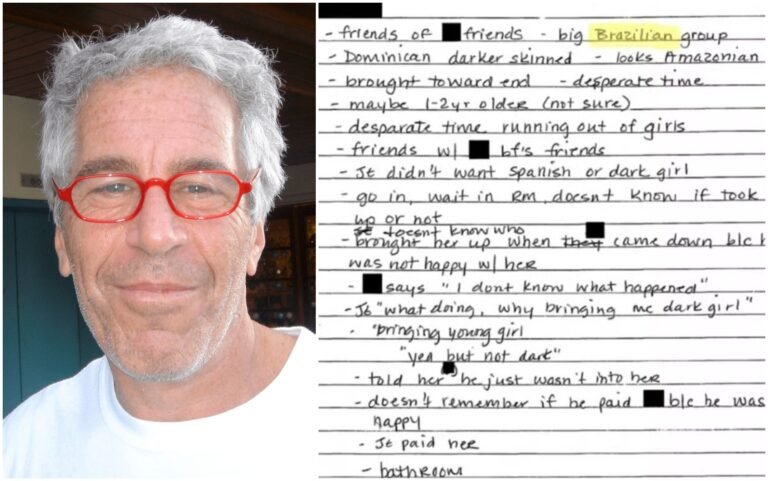 - friends of friends - big Brazilian group
- Dominican darker skinned - looks Amazonian
- brought toward end - desperate time
- maybe 1-2yr older (not sure)
- desparate time running out of girls
- friends w/ bf's friends
- Je didn't want Spanish or dark girl
- go in, wait in Rm, doesnt know if took
up or not
doesnt know who
- brought her up when they came down b/c h
was not happy w/ her
- says "I dont know what happened"
- Je "what doing, why bringing me dark girl"
- "bringing young girl
"yea but not dark"
- told her he just wasn't into her
- doesn't remember if he paid b/c he was
happy
- Je paid her
- bathroom